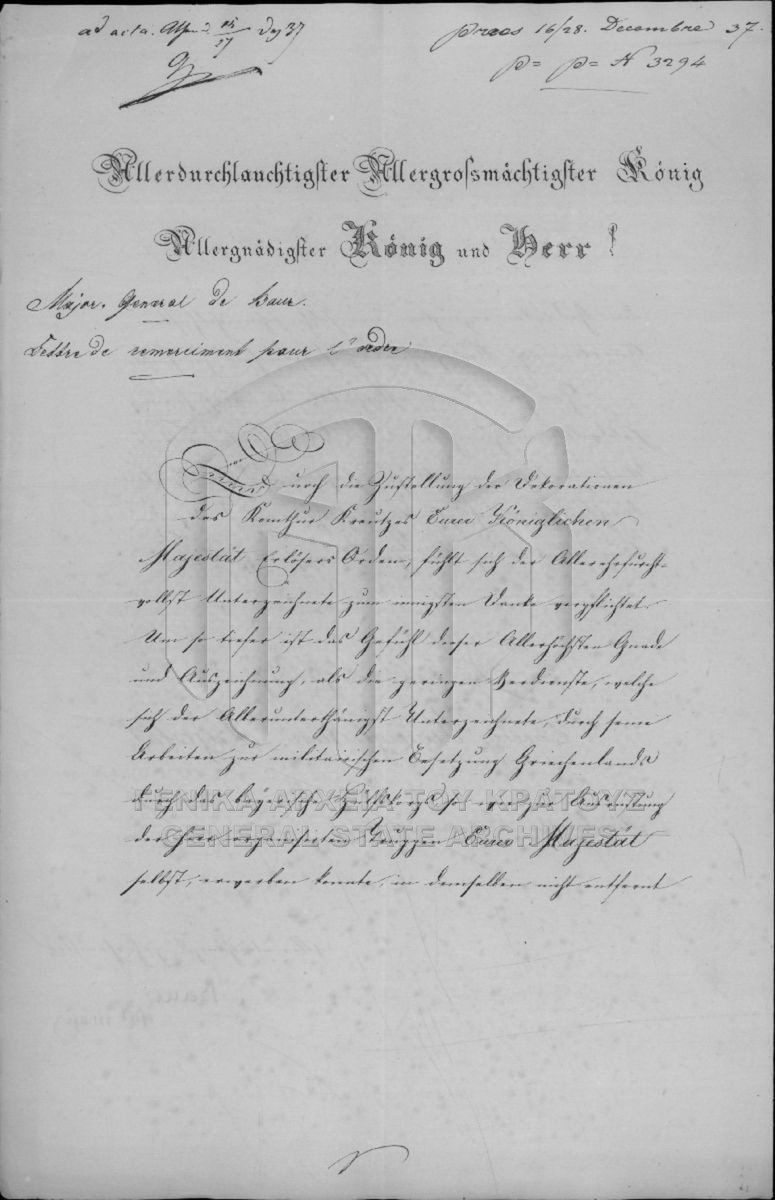 ad acta. Athen d. 16/27 Dez 37
praes 16/28. Decembre 37.
p= p= N 3294
Allerdurchlauchtigster Allergrossmächtigster König
Allergnädigster König und Herr!
Major. General de Baur.
Lettre de remerciment pour l'ordre
Durch die Zustellung der Dekorationen
des Komthur Kreutzes Eurer Königlichen
Majestät Erlösers Orden, fühlt sich der Allerehrfurcht-
vollst Unterzeichnete zum innigsten Danke verpflichtet.
Um so tiefer ist das Gefühl dieser Allerhöchsten Gnade
und Auszeichnung, als die geringen Verdienste, welche
sich der Allerunterthänigst Unterzeichnete, durch seine
Arbeiten zur militairischen Besetzung Griechenlands
durch das bayerische Hülfskorps so wie zur Ausrüstung
der hier organisirten Truppen Eurer Majestät
selbst, erwerben konnte, in demselben nicht entfernt
ΓΕΝΙΚΑ ΑΡΧΕΙΑ ΤΟΥ ΚΡΑΤΟΥΣ
GENERAL STATE ARCHIVES